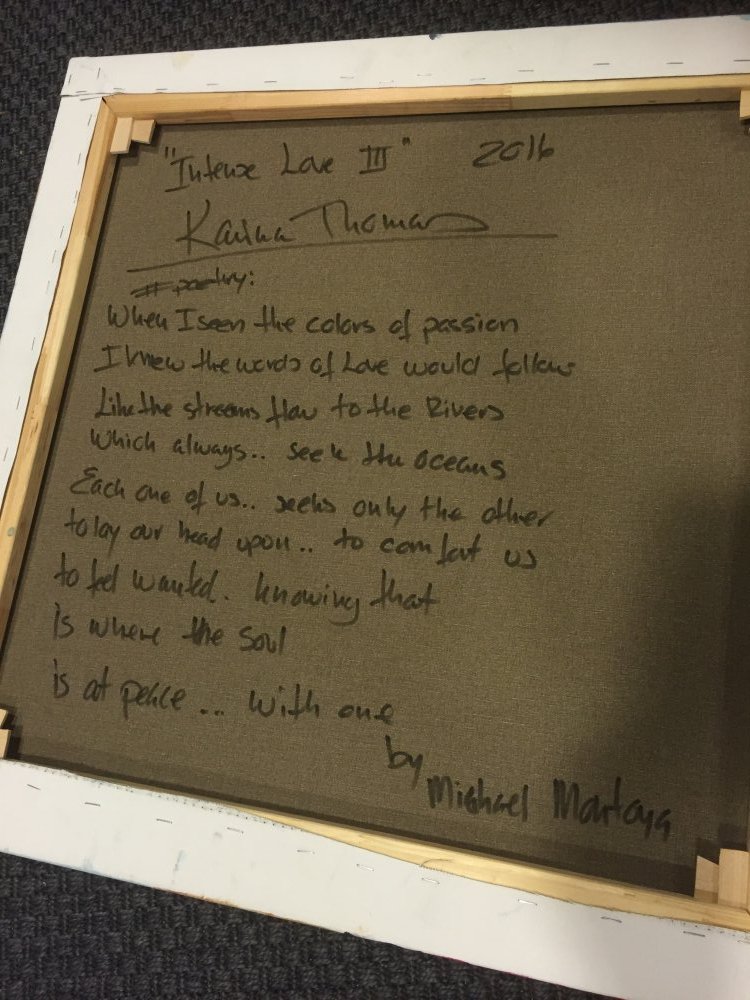 "Intense Love III" 2016
Karina Thomas
# poetry:
When I seen the colors of passion
I knew the words of Love would follow
Like the streams flow to the Rivers
which always.. seek the oceans
Each one of us.. seeks only the other
to lay our head upon.. to comfort us
to feel wanted. knowing that
is where the soul
is at peace... with one
by
Mishael Martoya